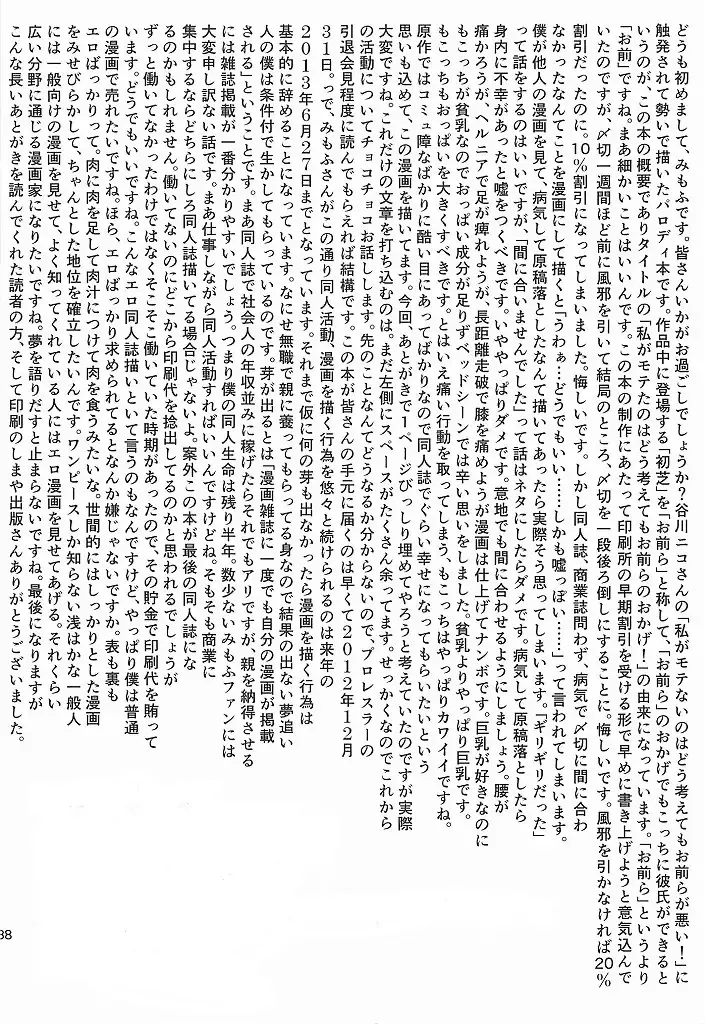 どうも初めまして、みもふです。皆さんいかがお過ごしでしょうか？谷川ニコさんの「私がモテないのはどう考えてもお前らが悪い！」に
触発されて勢いで描いたパロディ本です。作品中に登場する「初芝」を「お前ら」と称して、「お前ら」のおかげでもこっちに彼氏ができると
いうのが、この本の概要でありタイトルの「私がモテたのはどう考えてもお前らのおかげ！」の由来になっています。「お前ら」というより
「お前」ですね。まあ細かいことはいいんです。この本の制作にあたって印刷所の早期割引を受ける形で早めに書き上げようと意気込んで
いたのですが、〆切一週間ほど前に風邪を引いて結局のところ、〆切を一段後ろ倒しにすることに。悔しいです。風邪を引かなければ20％
割引だったのに。10％割引になってしまいました。悔しいです。しかし同人誌、商業誌問わず、病気で〆切に間に合わ
なかったなんてことを漫画にして描くと「うわぁ…どうでもいい……しかも嘘っぽい……」って言われてしまいます。
僕が他人の漫画を見て、病気して原稿落としたなんて描いてあったら実際そう思ってしまいます。「ギリギリだった」
って話をするのはいいですが、「間に合いませんでした」って話はネタにしたらダメです。病気して原稿落としたら
身内に不幸があったと嘘をつくべきです。いややっぱりダメです。意地でも間に合わせるようにしましょう。腰が
痛かろうが、ヘルニアで足が痺れようが、長距離走破で膝を痛めようが漫画は仕上げてナンボです。巨乳が好きなのに
もこっちが貧乳なのでおっぱい成分が足りずベッドシーンでは辛い思いをしました。貧乳よりやっぱり巨乳です。
もこっちもおっぱいを大きくすべきです。とはいえ痛い行動を取ってしまう、もこっちはやっぱりカワイイですね。
原作ではコミュ障なばかりに酷い目にあってばかりなので同人誌でぐらい幸せになってもらいたいという
思いも込めて、この漫画を描いてます。今回、あとがきで1ページびっしり埋めてやろうと考えていたのですが実際
大変ですね。これだけの文章を打ち込むのは。まだ左側にスペースがたくさん余ってます。せっかくなのでこれから
の活動についてチョコチョコお話しします。先のことなんてどうなるか分からないので、プロレスラーの
引退会見程度に読んでもらえれば結構です。この本が皆さんの手元に届くのは早くて2012年12月
31日。っで、みもふさんがこの通り同人活動、漫画を描く行為を悠々と続けられるのは来年の
2013年6月27日までとなっています。それまで仮に何の芽も出なかったら漫画を描く行為は
基本的に辞めることになっています。なにせ無職で親に養ってもらってる身なので結果の出ない夢追い
人の僕は条件付で生かしてもらっているのです。芽が出るとは「漫画雑誌に一度でも自分の漫画が掲載
される」ということです。まあ同人誌で社会人の年収並みに稼げたらそれでもアリですが、親を納得させる
には雑誌掲載が一番分かりやすいでしょう。つまり僕の同人生命は残り半年。数少ないみもふファンには
大変申し訳ない話です。まあ仕事しながら同人活動すればいいんですけどね。そもそも商業に
集中するならどちらにしろ同人誌描いてる場合じゃないよ。案外この本が最後の同人誌にな
るのかもしれません。働いてないのにどこから印刷代を捻出してるのかと思われるでしょうが
ずっと働いてなかったわけではなくそこそこ働いていた時期があったので、その貯金で印刷代を賄って
います。どうでもいいですね。こんなエロ同人誌描いといて言うのもなんですけど、やっぱり僕は普通
の漫画で売れたいですね。ほら、エロばっかり求められてるとなんか嫌じゃないですか。表も裏も
エロばっかりって。肉に肉を足して肉汁につけて肉を食うみたいな。世間的にはしっかりとした漫画
をみせびらかして、ちゃんとした地位を確立したいんです。ワンピースしか知らない浅はかな一般人
には一般向けの漫画を見せて、よく知ってくれている人にはエロ漫画を見せてあげる。それくらい
広い分野に通じる漫画家になりたいですね。夢を語りだすと止まらないですね。最後になりますが
こんな長いあとがきを読んでくれた読者の方、そして印刷のしまや出版さんありがとうございました。
38